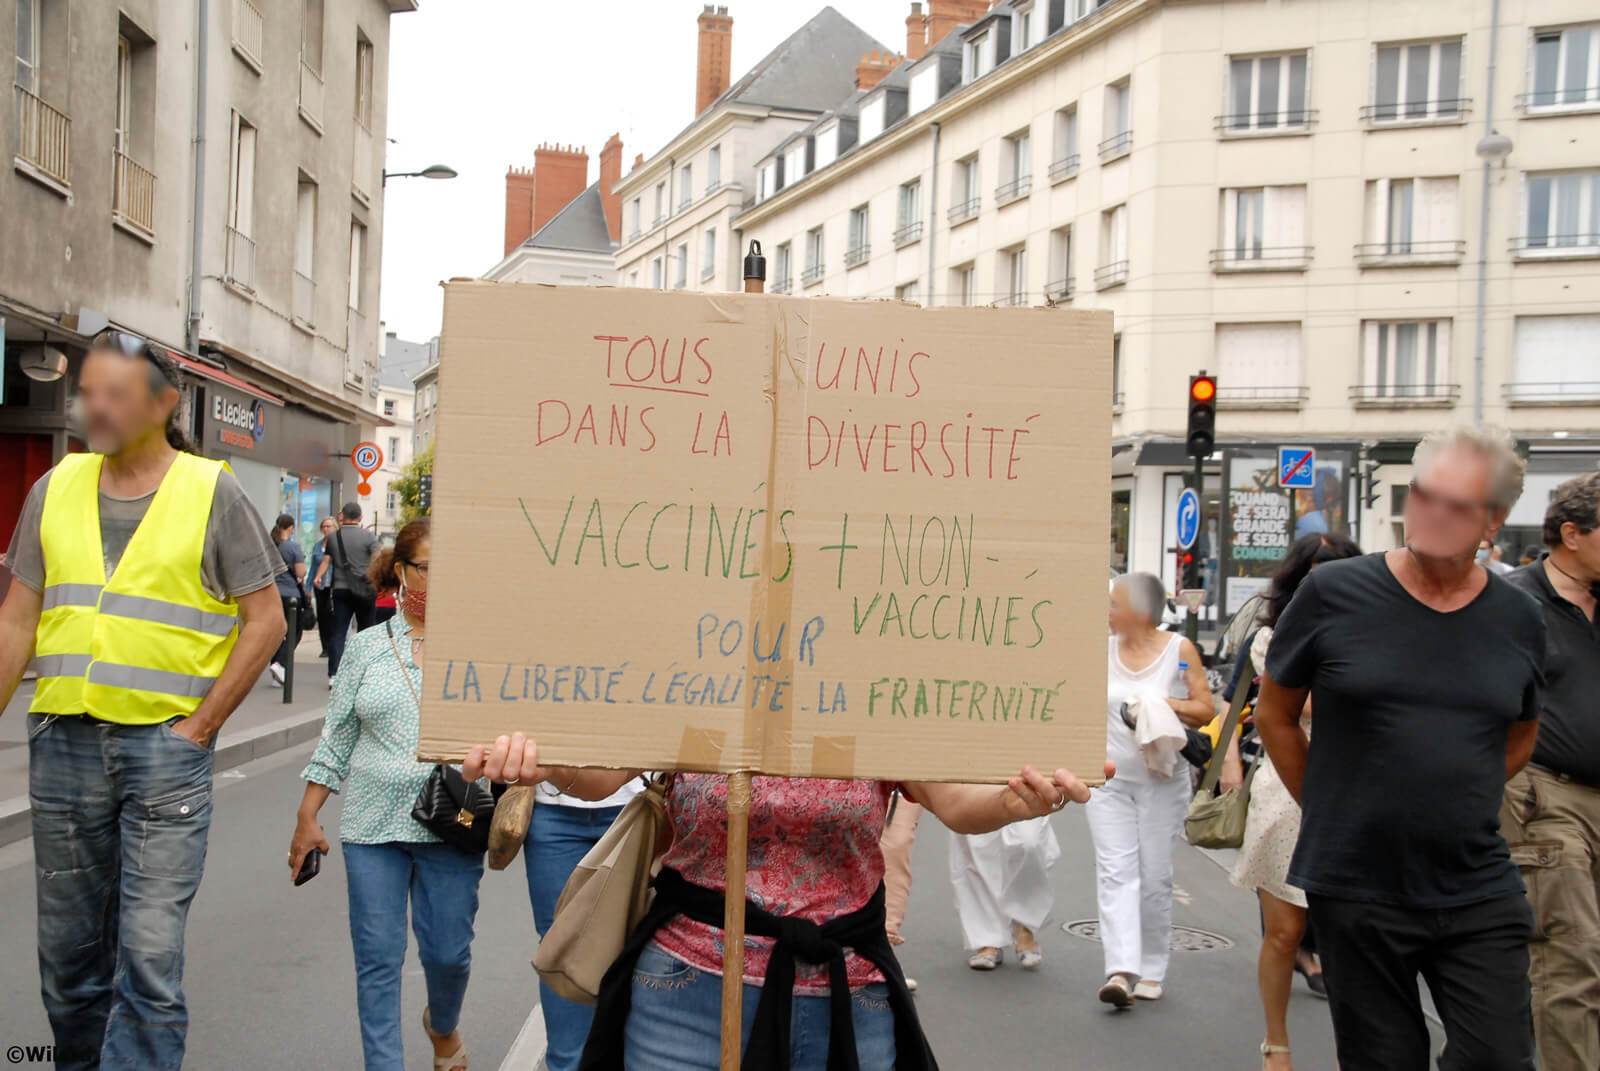 TOUS UNIS
DANS LA DIVERSITÉ
VACCINÉS + NON-
VACCINÉS
POUR
LA LIBERTÉ. L'ÉGALITÉ. LA FRATERNITÉ
E.Leclerc
QUAND
JE SERAI
GRANDE
JE SERAI
©Wil